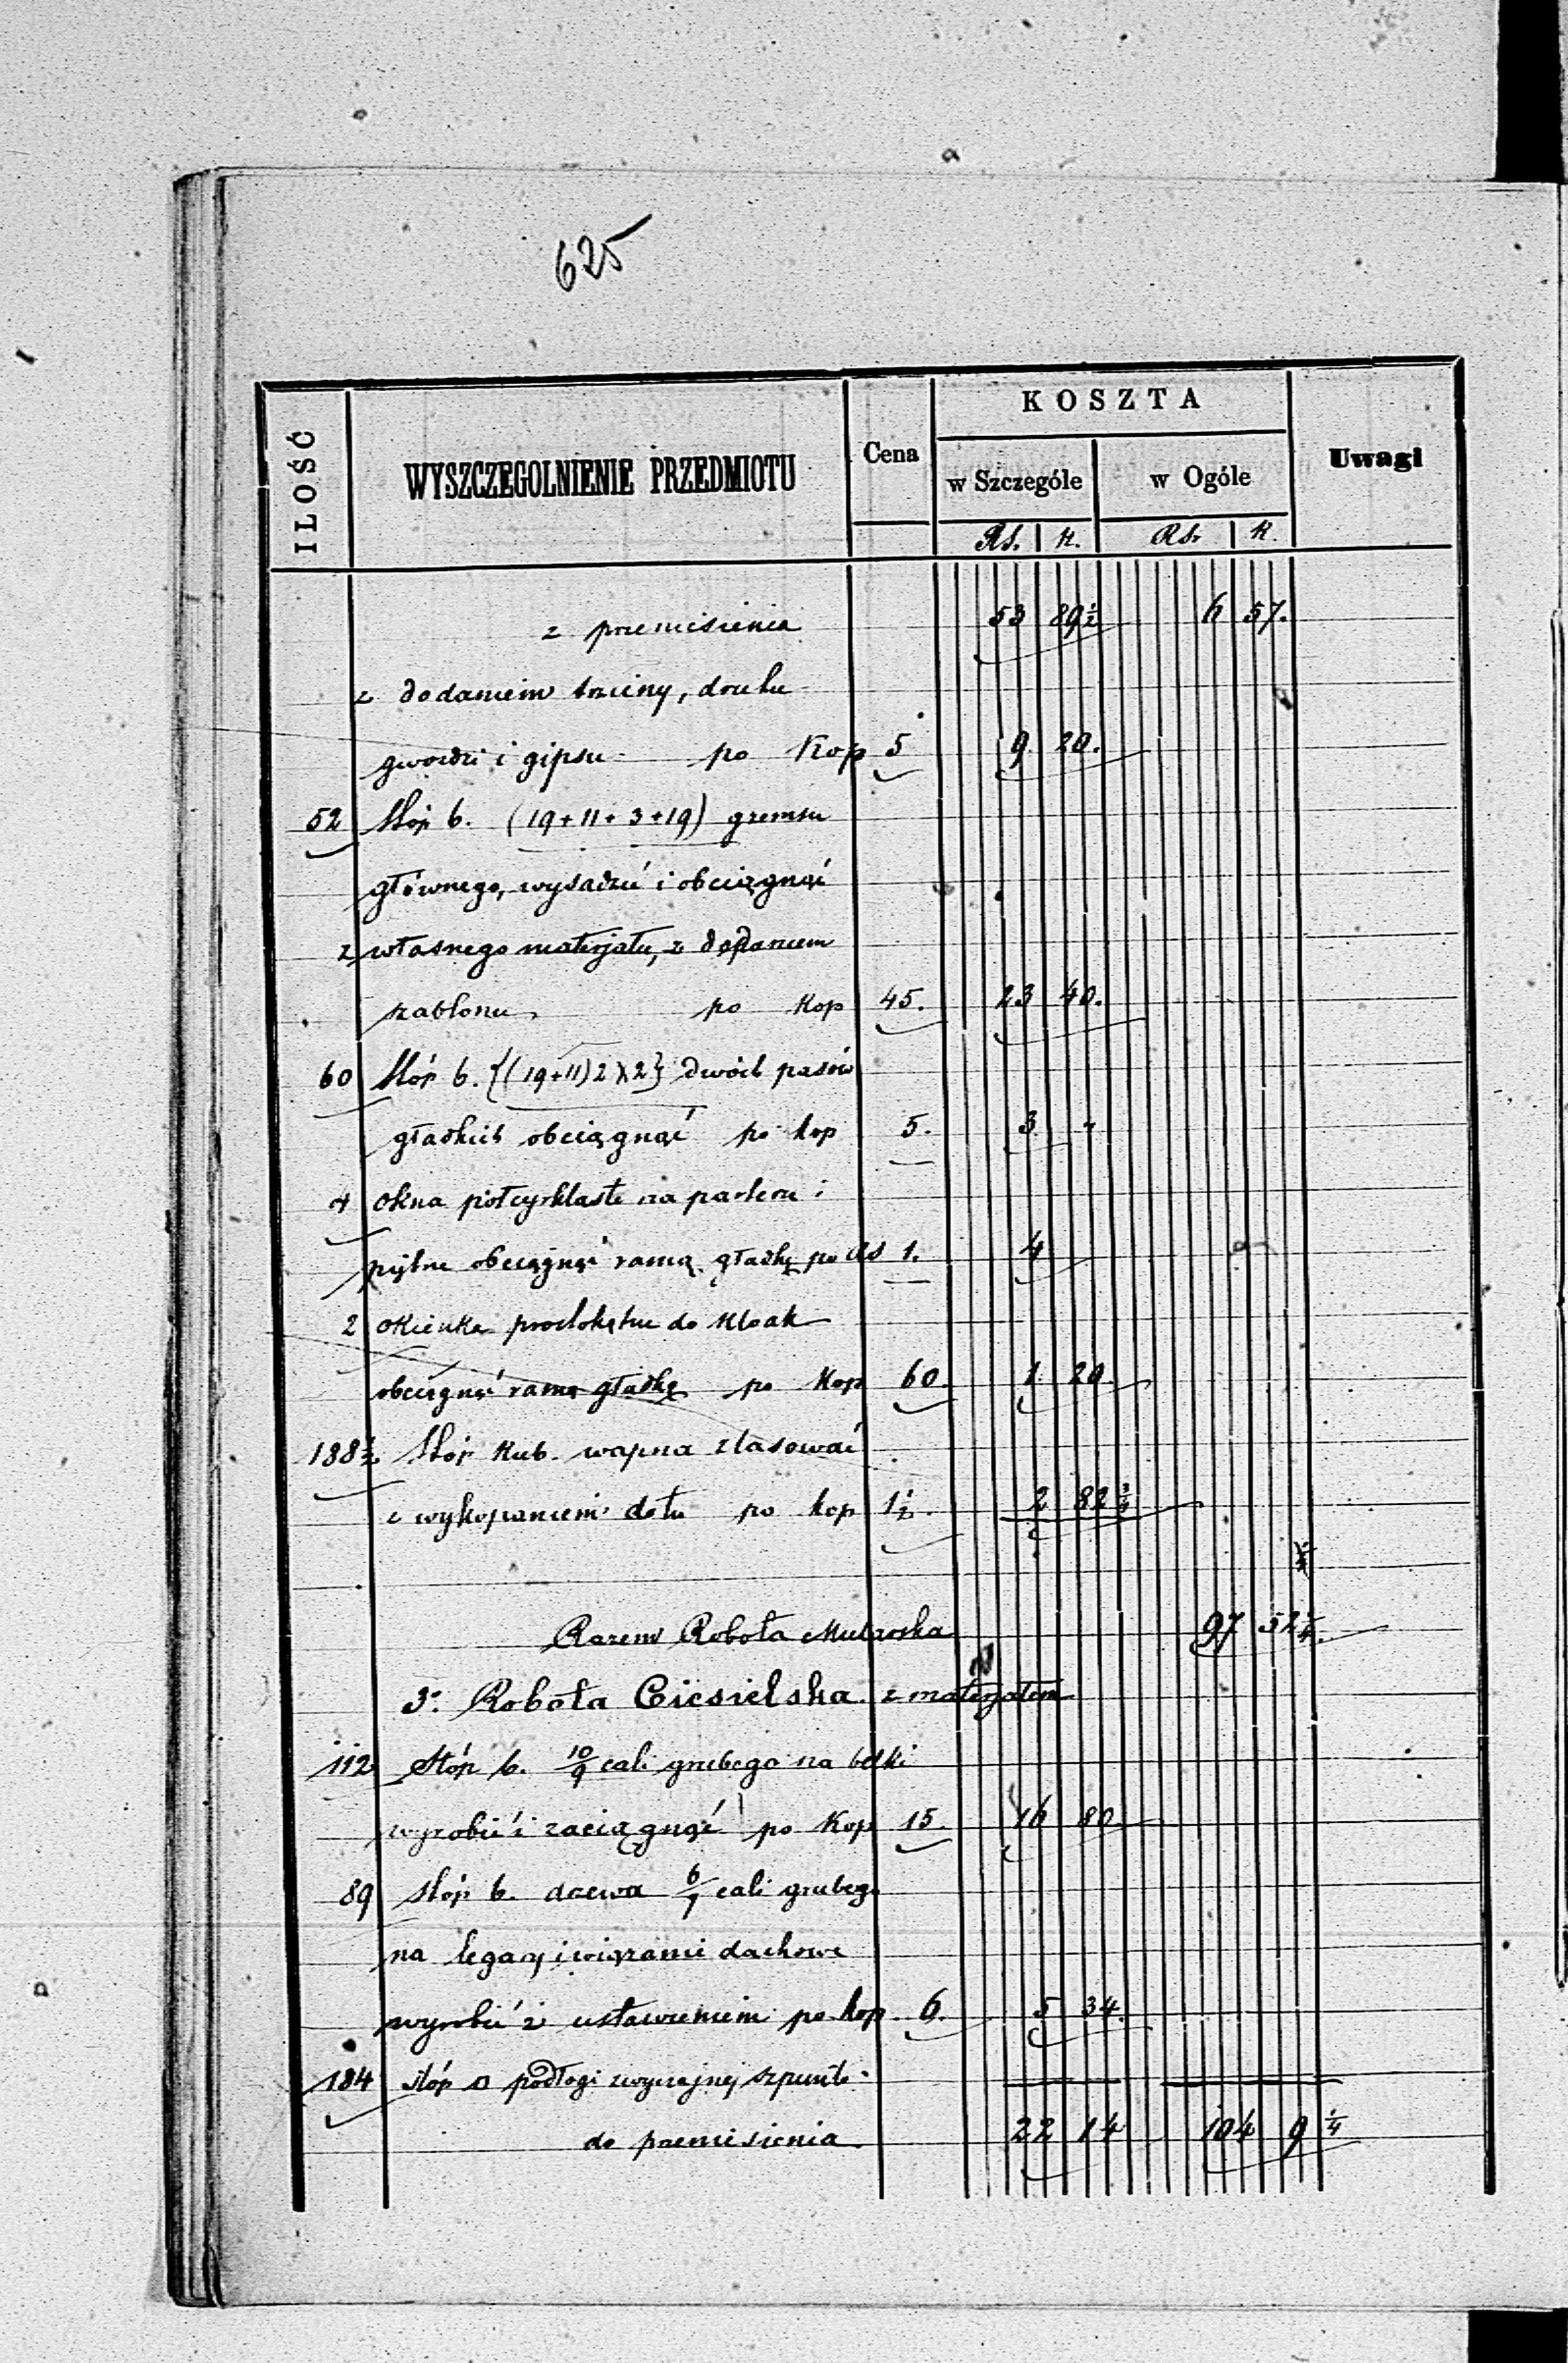 625
ILOŚĆ WYSZCZEGOLNIENIE PRZEDMIOTU Cena KOSZTA Uwagi
w Szczególe w Ogóle
Rs. k. Rs. k.
z przeniesienia 53 89½ 6 57.
z dodaniem trzciny, drutu
gwoździ i gipsu po Kop 5 9 20.
52 Stóp b. (19+11+3+19) gzemsu
głównego, wysadzić i obciągnąć
z własnego materjału, z dodaniem
szablonu, po Kop 45. 23 40.
60 Stóp b. {(19+11)2×2} dwóch pasów
gładkich obciągnąć po kop 5. 3 -
4 okna półcyrklaste na parterze i
piętrze obciągnąć ramą gładką po Rs 1. 4
2 okienka prostokątne do kloak
obciągnąć ramą gładką po Kop 60. 1 20.
188½ Stóp Kub. wapna zlasować
z wykopaniem dołu po kop 1½. 2 82¾
Razem Robota Mularska 97 52¼.
3. Robota Ciesielska z materjałem
112 Stóp b. 10/9 cali grubego na belki
wyrobić i zaciągnąć po Kop 15. 16 80.
89 stóp b. drzewa 6/7 cali grubego
na legary i wiązanie dachowe
wyrobić z ustawieniem po kop. 6. 5 34.
184 stóp □ podłogi zwyczajnej szpunto-
do przeniesienia. 22 14 104 9¼